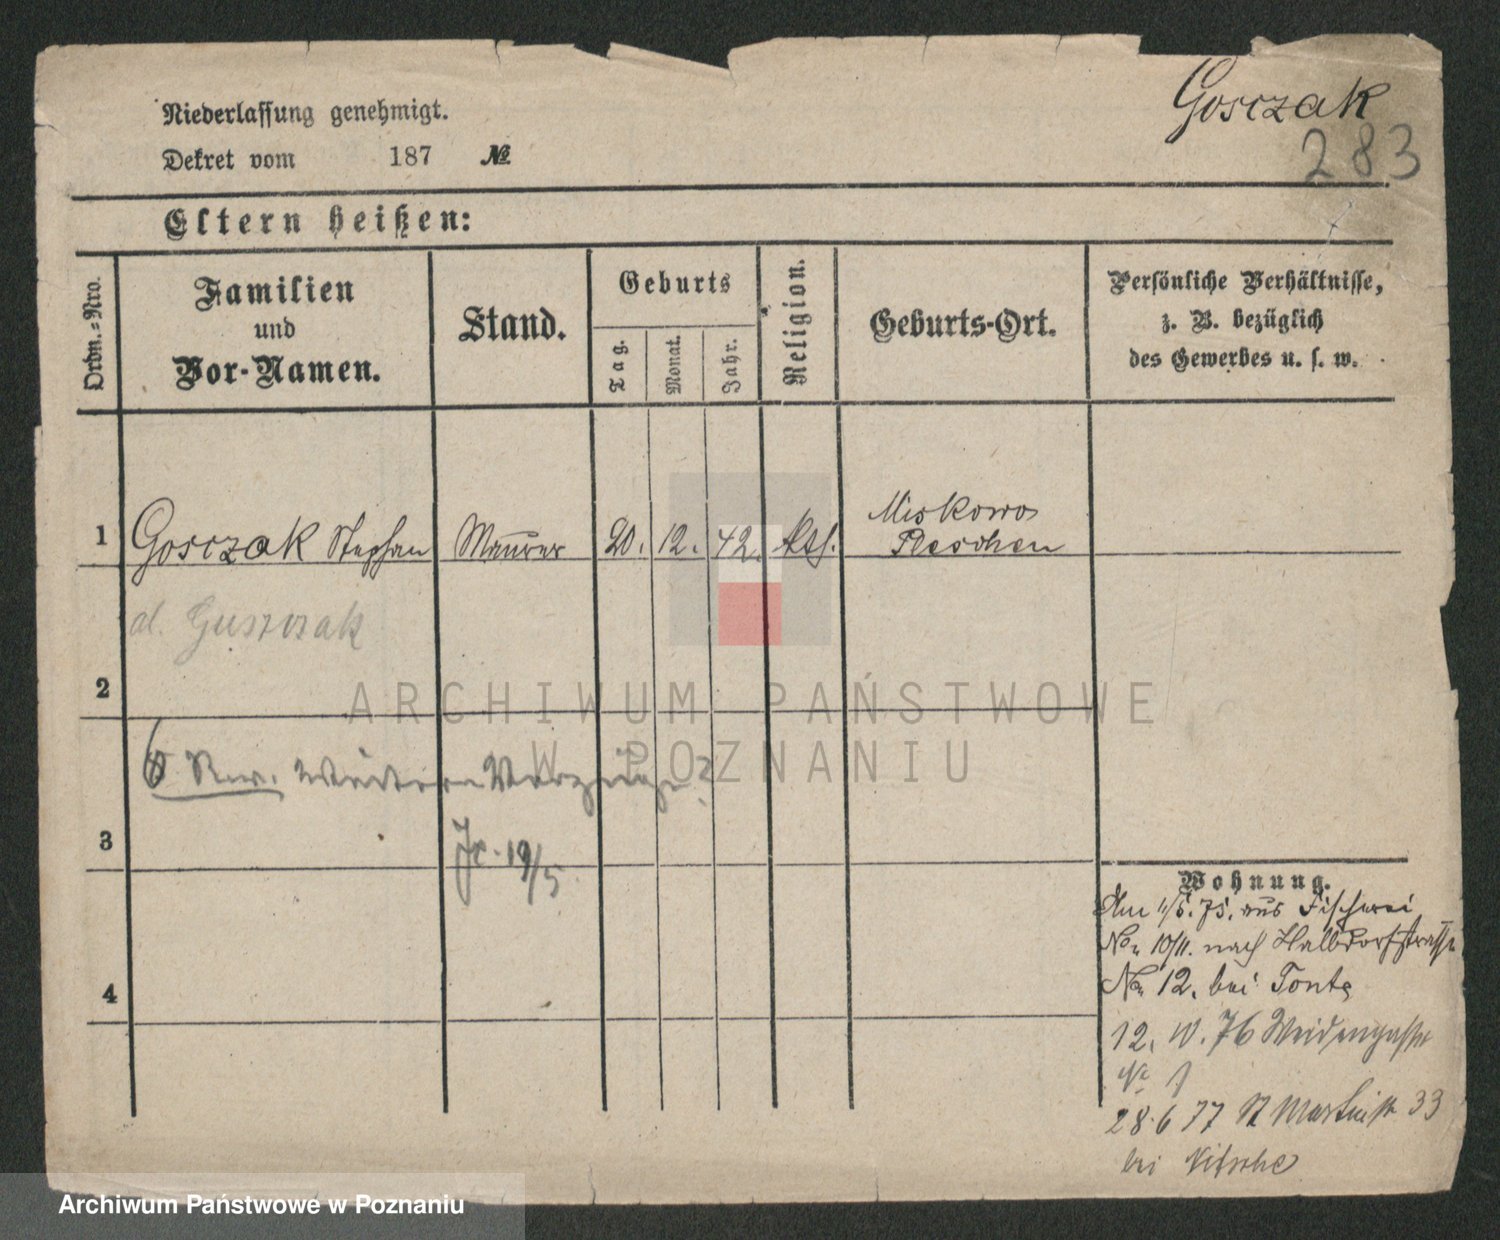 Gosczak
283
Niederlassung genehmigt.
Dekret vom 187 №
Eltern heißen:
Ordn.=Nro.
Familien
und
Vor-Namen.
Stand.
Geburts
Tag.
Monat.
Jahr.
Religion.
Geburts-Ort.
Persönliche Verhältnisse,
z. B. bezüglich
des Gewerbes u. s. w.
1 Gosczak Stephan Maurer 20. 12. 42. kath. Miskowo
Pleschen
d. Guszczak
2
6 Rev. Vorzüge?
19/5
3
4
Wohnung.
Am 11/5. 75. aus Fischerei
No 10/11. nach Halbdorfstrasse
No 12. bei Tonte
12. 10. 76 Weidengasse
No 1
28.6 77 St Martinstr 33
bei Nitsche
ARCHIWUM PAŃSTWOWE
W POZNANIU
Archiwum Państwowe w Poznaniu